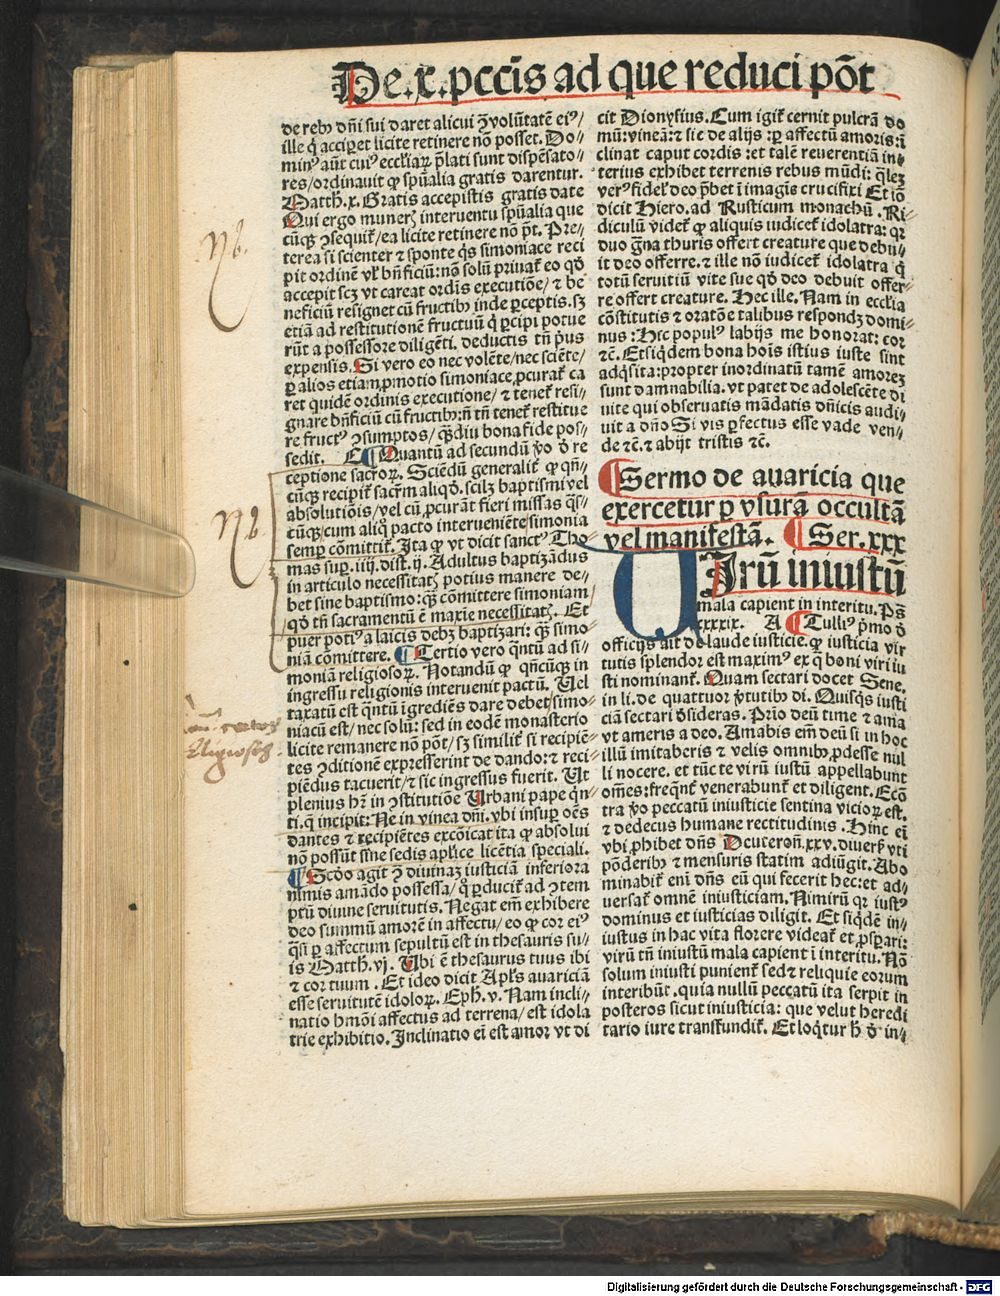 De .x. pccīs ad que reduci pōt
de rebꝰ dn̄i sui daret alicui ↄ̄ volūtatē eiꝰ/
ille q̄ acciꝑet licite retinere nō posset. Do⸗
minꝰ aūt cuiꝰ eccl̄iaꝝ p̄lati sunt dispēsato⸗
res/ordinauit ꝙ spūalia gratis darentur.
Matth.x. Gratis accepistis gratis date
Qui ergo munerꝭ interuentu spūalia que
cūqꝫ ↄsequit᷑/ea licite retinere nō p̄t. Pre⸗
terea si scienter ⁊ sponte q̄s simoniace reci
pit ordinē vl̓ bn̄ficiū: nō solū priuat᷑ eo qd̓
accepit scꝫ vt careat ordīs executiōe/ ⁊ be
neficiū resignet cū fructibꝰ inde ꝑceptis. sꝫ
etiā ad restitutionē fructuū q̄ ꝑcipi potue
rūt a possessore diligēti. deductis tn̄ p̓us
expensis. Si vero eo nec volēte/nec sciēte/
ꝑ alios etiam ꝓmotio simoniace ꝓcurat᷑ ca
ret quidē ordinis executione/ ⁊ tenet᷑ resi⸗
gnare bn̄ficiū cū fructibꝰ: nō tn̄ tenet᷑ restitue
re fructꝰ ↄsumptos/ qꝫdiu bona fide pos⸗
sedit. E ¶ Quantū ad secundū v̓o d̓ re
ceptione sacroꝝ. Sciēdū generalit᷑ ꝙ qn̄⸗
cūqꝫ recipit᷑ sacr̄m aliqd̓. scilꝫ baptismi vel
absolutiōis/vel cū ꝓcurāt fieri missas q̄s⸗
cūqꝫ cum aliq̄ pacto interueniēte/simonia
semꝑ cōmittit᷑. Ita ꝙ vt dicit sanctꝰ Tho⸗
mas suꝑ .iiij. dist.ij. Adultus baptizādus
in articulo necessitatꝭ potius manere de⸗
bet sine baptismo: qꝫ cōmittere simoniam/
qd̓ tn̄ sacramentū ē maxīe necessitatꝭ. Et
puer potiꝰ a laicis debꝫ baptizari: qꝫ simo⸗
niā cōmittere. ¶ Tertio vero qn̄tū ad si⸗
moniā religiosoꝝ. Notandū ꝙ qn̄cūqꝫ in
ingressu religionis interuenit pactū. Uel
taxatū est qn̄tū īgrediēs dare debet/simo⸗
niacū est/ nec solū: sed in eodē monasterio
licite remanere nō pōt/ sꝫ similit᷑ si recipiē⸗
tes ↄditionē expresserint de dando: ⁊ reci⸗
piēdus tacuerit/ ⁊ sic ingressus fuerit. Ut
plenius hꝫ in ↄstitutiōe Urbani pape qn̄
ti. q̄ incipit: Ne in vinea dn̄i. vbi insuꝑ oēs
dantes ⁊ recipiētes excōicat ita ꝙ absolui
nō possūt sine sedis apl̄ice licētia speciali.
¶ Scd̓o agit ↄ̄ diuinaꝫ iusticiā inferiora
nimis amādo possessa/ q̄ ꝑducit᷑ ad ↄtem
ptū diuine seruitutis. Negat em̄ exhibere
deo summū amorē in affectu/ eo ꝙ cor eiꝰ
q̄si ꝑ affectum sepultū est in thesauris su⸗
is Matth.vj. Ubi ē thesaurus tuus ibi
⁊ cor tuum. Et ideo dicit Apl̄s auariciā
esse seruitutē idoloꝝ. Eph.v. Nam incli⸗
natio hmōi affectus ad terrena/ est idola
trie exhibitio. Inclinatio ei̓ est amor vt di
cit Dionysius. Cum igit᷑ cernit pulcrā do
mū: vineā: ⁊ sic de alijs: ꝑ affectū amoris: ī
clinat caput cordis: et talē reuerentiā in⸗
terius exhibet terrenis rebus mūdi: q̄leꝫ
verꝰ fidel̓ deo p̄bet ī imagīs crucifixi Et iō
dicit Hiero. ad Rusticum monachū. Ri⸗
diculū videt᷑ ꝙ aliquis iudicet᷑ idolatra: qꝛ
duo gͣna thuris offert creature que debu⸗
it deo offerre. ⁊ ille nō iudicet᷑ idolatra q̓
totū seruitiū vite sue qd̓ deo debuit offer⸗
re offert creature. Hec ille. Nam in eccl̄ia
cōstitutis ⁊ oratōe talibus respondꝫ domi⸗
nus: Hic populꝰ labijs me honorat: cor
⁊c̄. Et siq̓dem bona hois istius iuste sint
adq̓sita: propter inordinatū tamē amoreꝫ
sunt damnabilia. vt patet de adolescēte di
uite qui obseruatis mādatis dn̄icis audi⸗
uit a dn̄o Si vis ꝑfectus esse vade ven⸗
de ⁊c̄. ⁊ abijt tristis ⁊c̄.
¶ Sermo de auaricia que
exercetur ꝑ vsurā occultā
vel manifestā. ¶ Ser.xxx
UIrū iniustū
mala capient in interitu. Ps̄
cxxxix. A ¶ Tulliꝰ p̓mo d̓
officijs ait de laude iusticie. ꝙ iusticia vir
tutis splendor est maximꝰ ex q̄ boni viri iu
sti nominant᷑. Quam sectari docet Sene.
in li. de quattuor v̓tutibꝰ di. Quisq̓s iusti
ciā sectari d̓sideras. Prio deū time ⁊ ama
vt ameris a deo. Amabis em̄ deū si in hoc
illū imitaberis ⁊ velis omnibꝰ ꝓdesse nul
li nocere. et tūc te virū iustū appellabunt
om̄es: freqn̄t venerabunt᷑ et diligent. Ecō
tra v̓o peccatū iniusticie sentina vicioꝝ est.
⁊ dedecus humane rectitudinis. Hinc ei̓
vbi ꝓhibet dn̄s Deuteron̄.xxv. diuerſ̓ vti
pōderibꝰ ⁊ mensuris statim adiūgit. Abo
minabit᷑ eni̓ dn̄s eū qui fecerit hec: et ad⸗
uersat᷑ omnē iniusticiam. Nimirū qꝛ iustꝰ
dominus et iusticias diligit. Et siq̓dē in⸗
iustus in hac vita florere videat᷑ et ꝓsꝑari:
virū tn̄ iniustū mala capient ī interitu. Nō
solum iniusti punient᷑ sed ⁊ reliquie eorum
interibūt. quia nullū peccatū ita serpit in
posteros sicut iniusticia: que velut heredi
tario iure transfundit᷑. Et loq̓tur h̓ d̓ in⸗
Nb.
Nb.
Digitalisierung gefördert durch die Deutsche Forschungsgemeinschaft - DFG